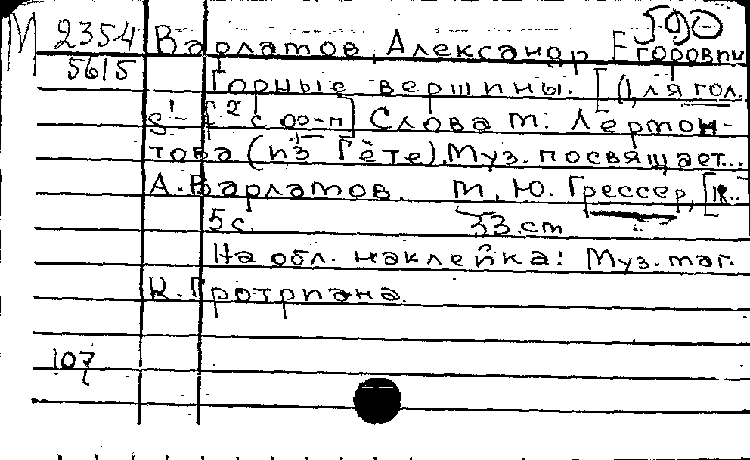 М 2354 Варламов, Александр Егорович 590
5615 Горные вершины. [Для гол.
с ф-п] Слова М. Лермон-
това (из Гёте). Муз. посвящает...
А. Варламов. М, Ю. Грессер, [18..
5 с. 33 см
На обл. наклейка: Муз. маг.
К. Гротриана.
107